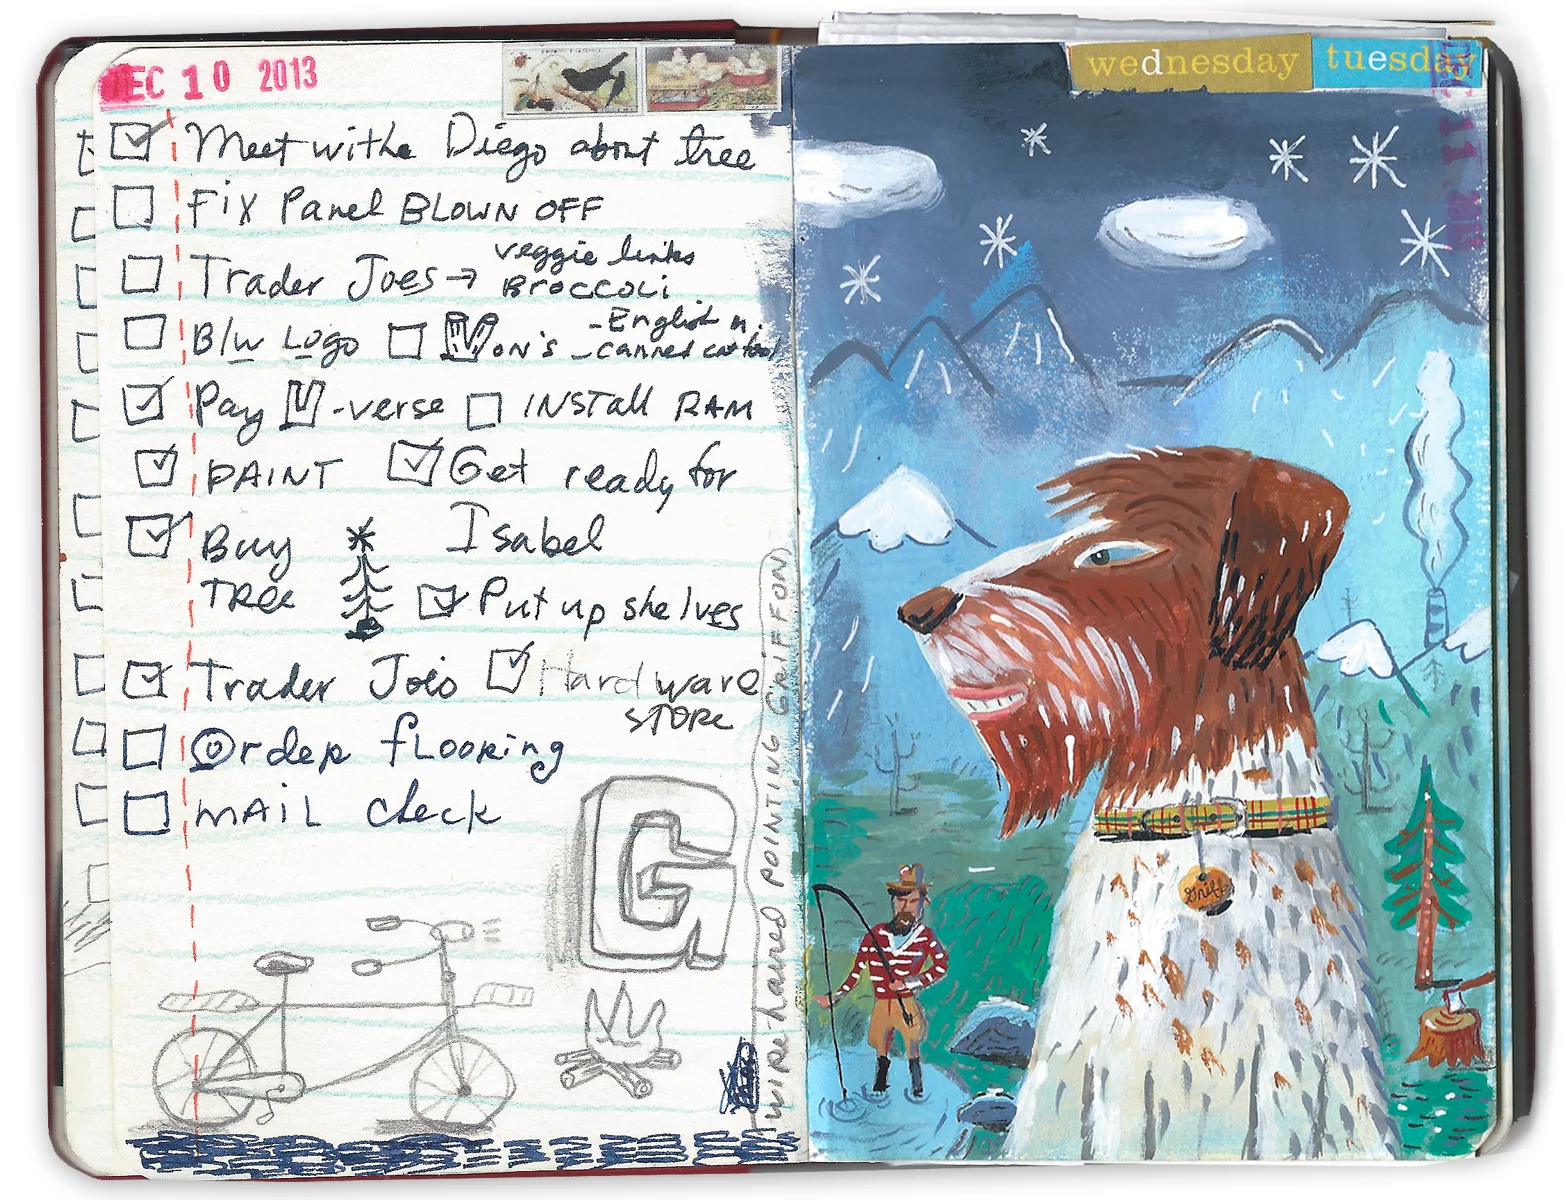 DEC 10 2013
wednesday
tuesday
DEC 11 2013
Meet withe Diego about tree
Fix Panel BLOWN OFF
Trader Joes → veggie links
Broccoli
B/w Logo
VON'S - English m.
- canned cat food
Pay U-verse
INSTALL RAM
PAINT
Get ready for
Isabel
Buy
TREE
Put up shelves
Trader Joes
Hardware
STORE
Order flooring
MAIL check
G
WIRE-haired POINTING GRIFFON
Griff